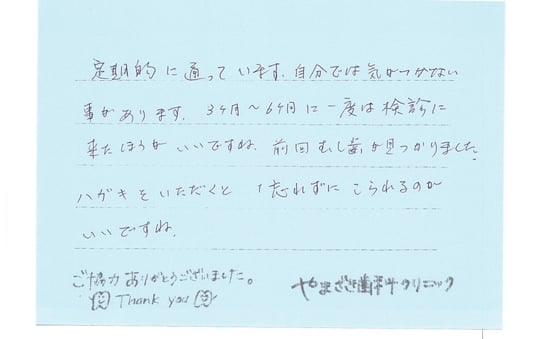 定期的に通っています。自分では気がつかない
事があります。3ヶ月～6ヶ月に一度は検診に
来たほうがいいですね。前回むし歯が見つかりました。
ハガキをいただくと忘れずにこられるのが
いいですね。
ご協力ありがとうございました。
Thank you
やまざき歯科クリニック